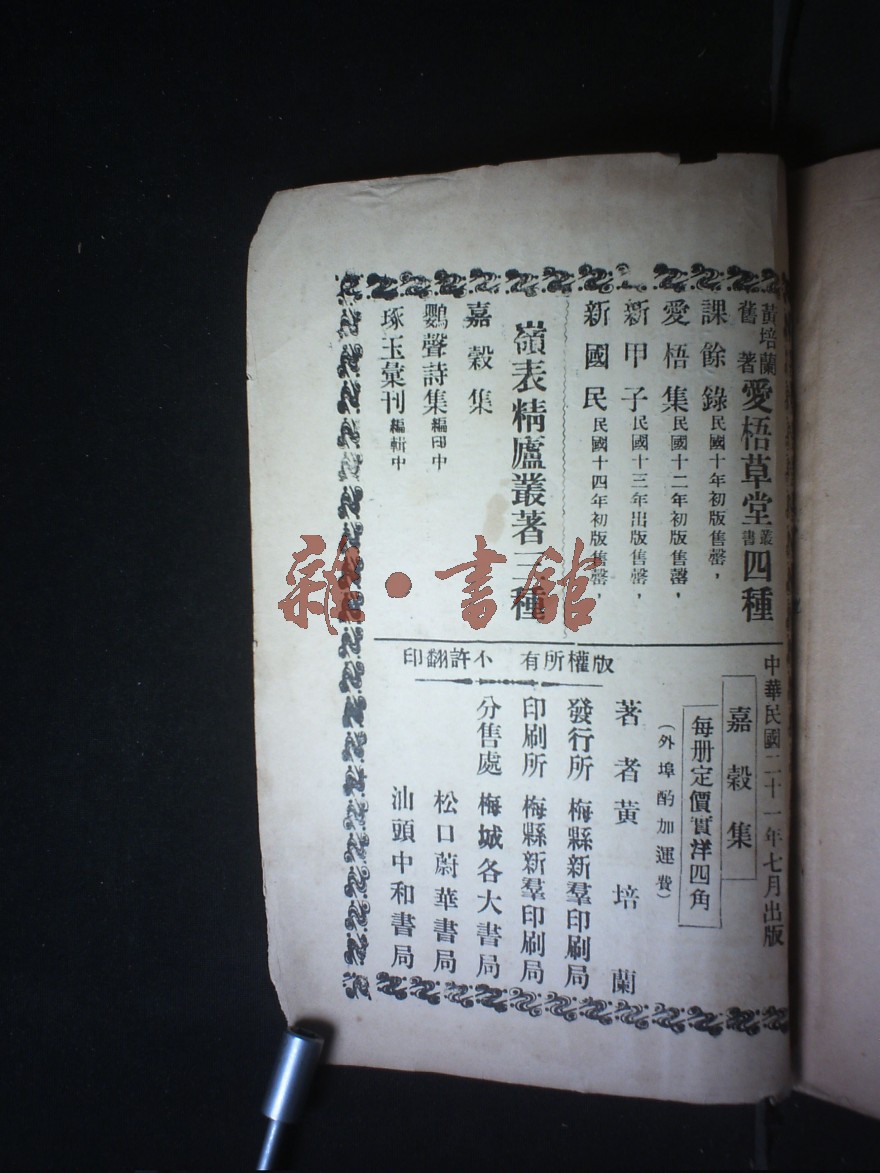 黃培蘭舊著 愛梧草堂叢書四種
課餘錄 民國十年初版售罄，
愛梧集 民國十二年初版售罄，
新甲子 民國十三年出版售罄，
新國民 民國十四年初版售罄，
嶺表精廬叢著三種
嘉穀集
鸚聲詩集 編印中
琢玉彙刊 編輯中
中華民國二十一年七月出版
嘉穀集
每册定價實洋四角
（外埠酌加運費）
版權所有 不許翻印
著者黃培蘭
發行所 梅縣新羣印刷局
印刷所 梅縣新羣印刷局
分售處 梅城各大書局
松口蔚華書局
汕頭中和書局
雜·書館